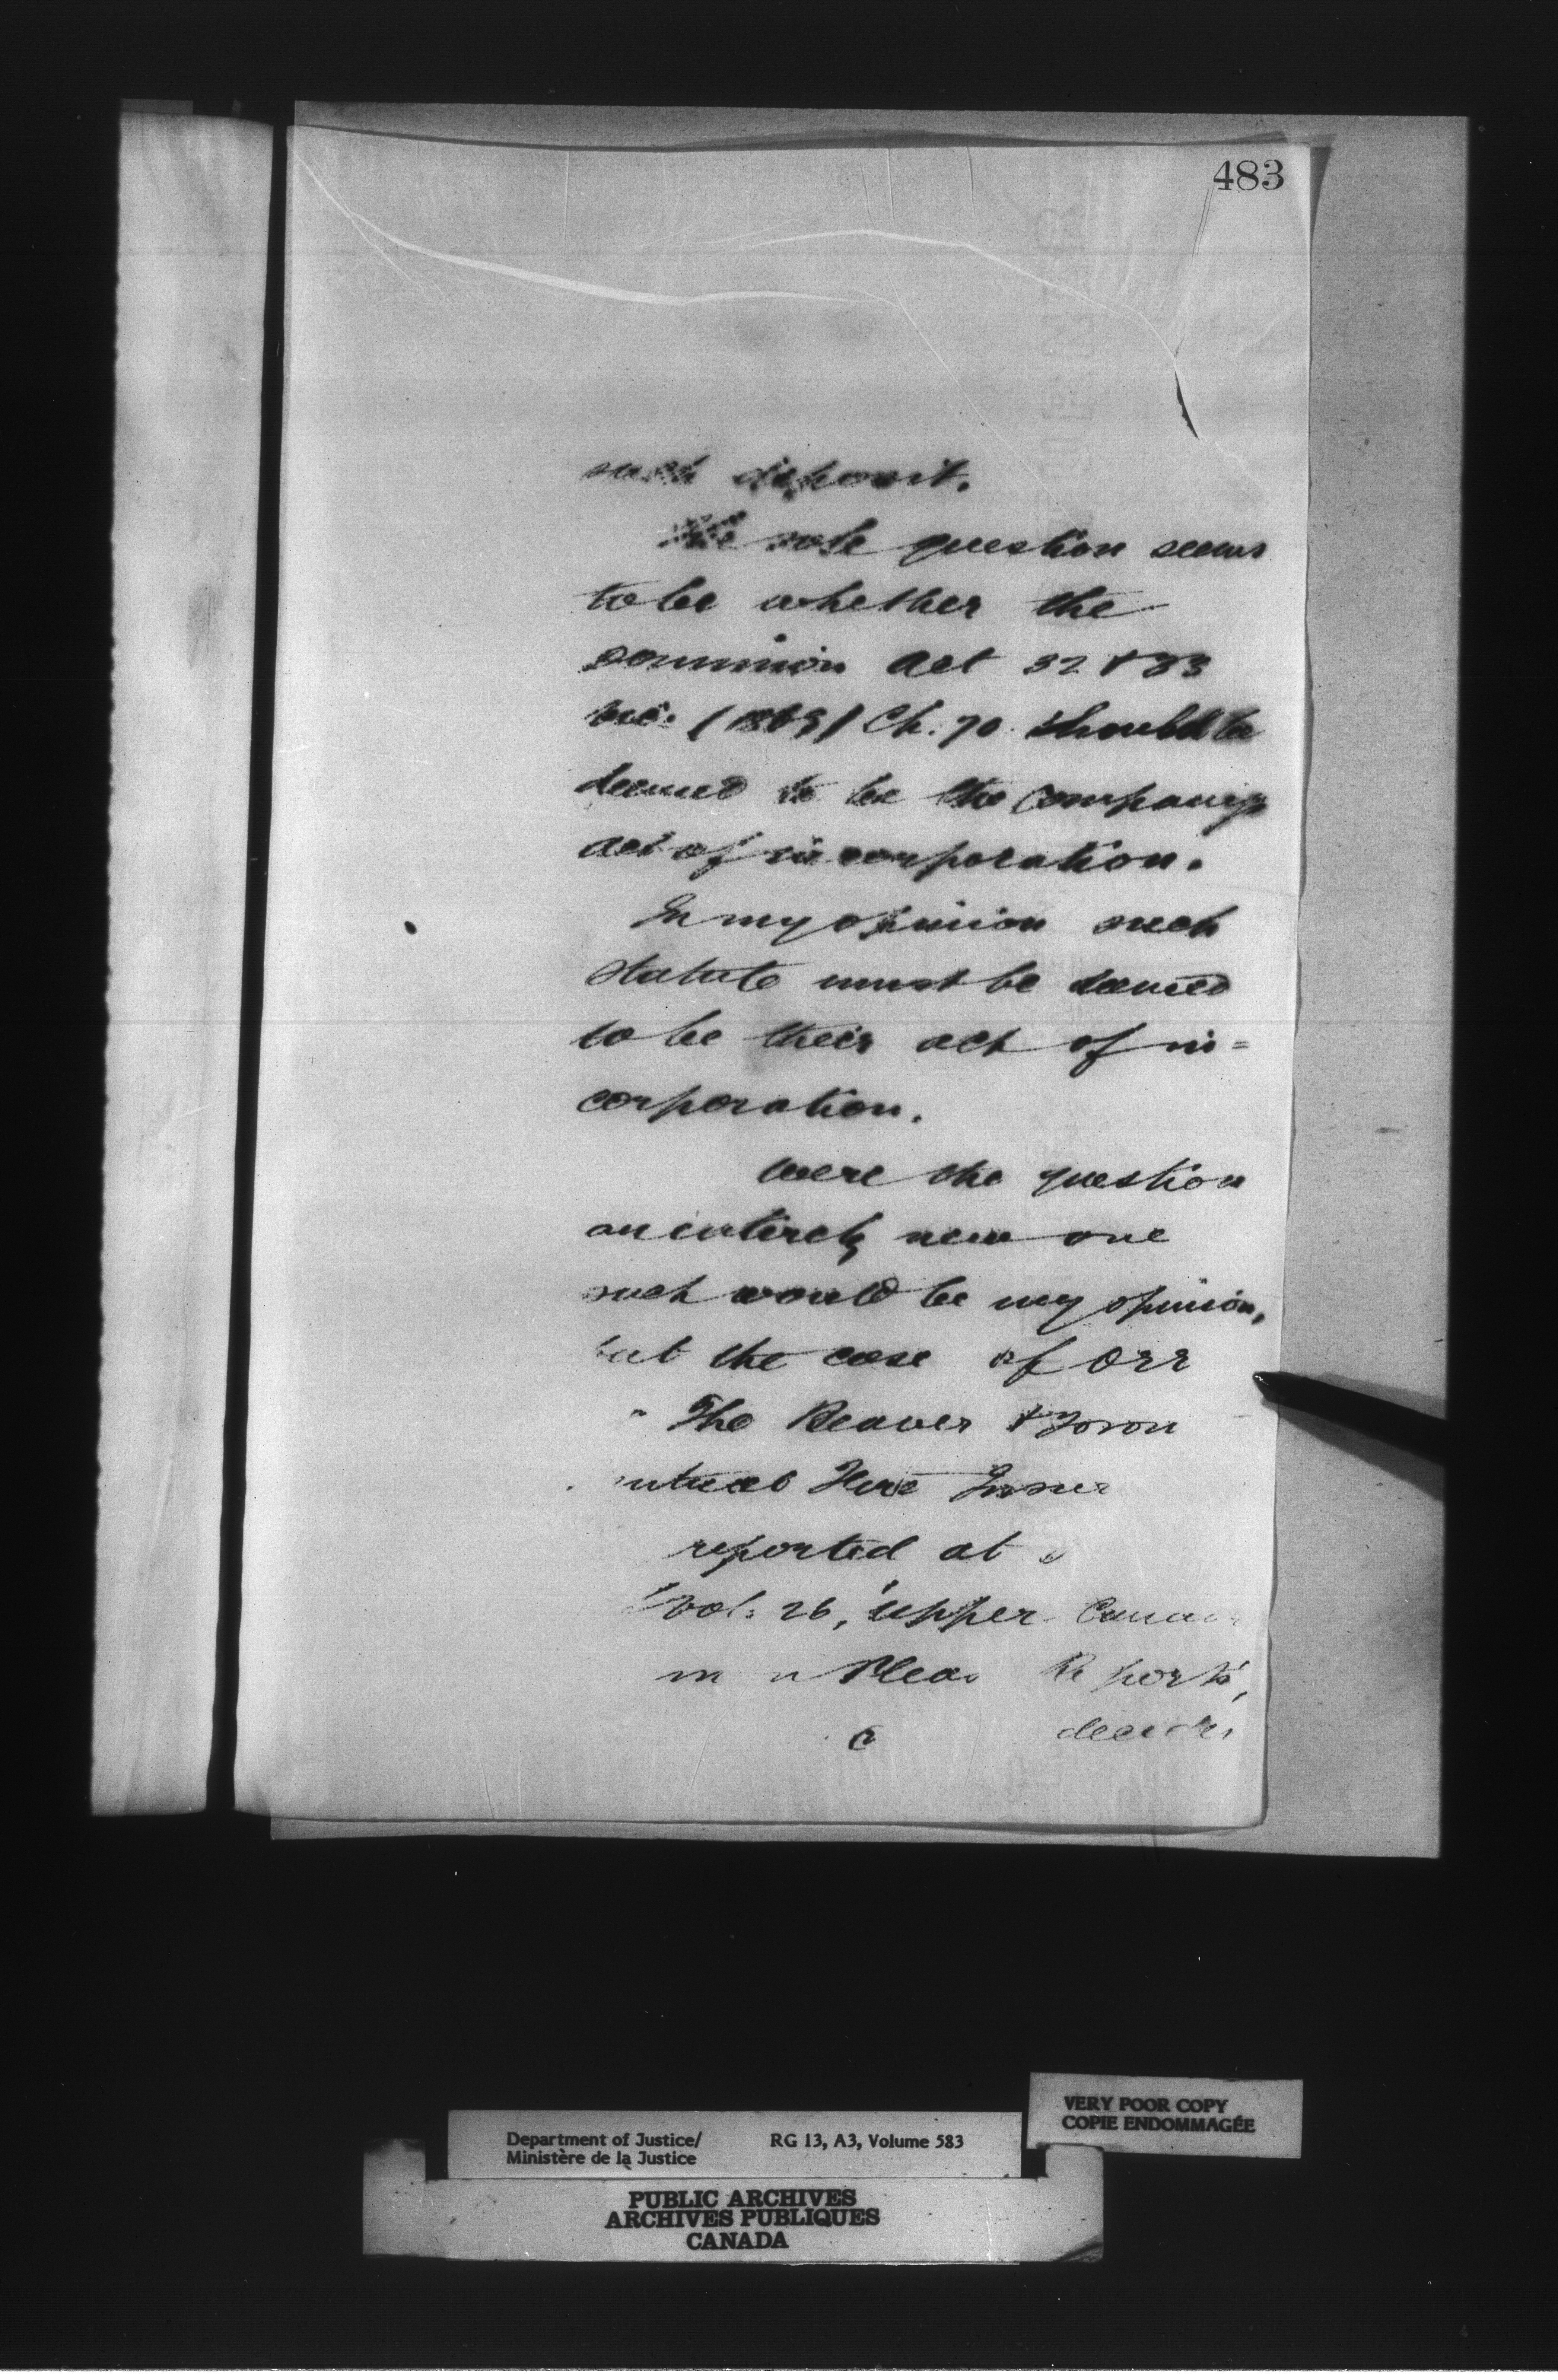 483
such deposit.
The sole question seems
to be whether the
Dominion Act 32 & 33
Vic. (1869) Ch. 70 should be
deemed to be the Companys
act of incorporation.
In my opinion such
statute must be deemed
to be their act of in=
corporation.
Were the question
an entirely new one
such would be my opinion,
but the case of Orr
The Beaver & Toron
utual Fire Insur
reported at
Vol. 26, Upper Cana
m n Pleas Reports,
decides
VERY POOR COPY
COPIE ENDOMMAGÉE
Department of Justice/ RG 13, A3, Volume 583
Ministère de la Justice
PUBLIC ARCHIVES
ARCHIVES PUBLIQUES
CANADA